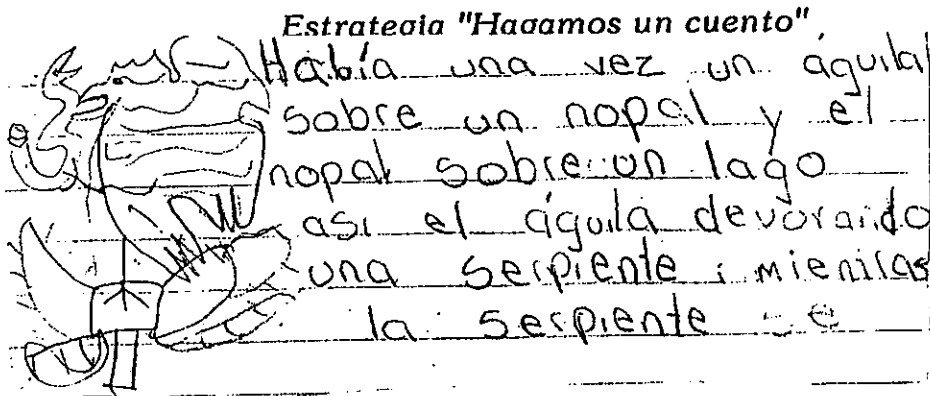 Estrategia "Hagamos un cuento"
Había una vez un águila
sobre un nopal y el
nopal sobre un lago
asi el águila devorando
una serpiente mientras
la serpiente